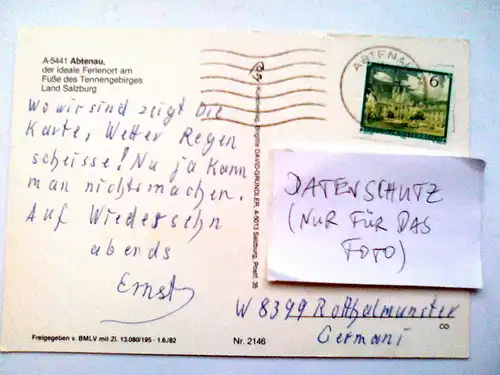 A-5441 Abtenau,
der ideale Ferienort am
Fuße des Tennengebirges
Land Salzburg
Wo wir sind zeigt Die
Karte, Wetter Regen
scheisse! Na ja kann
man nichts machen.
Auf Wiedersehn
abends
Ernst
Freigegeben v. BMLV mit Zl. 13.080/195 - 1.6./82
Nr. 2146
Brigitte DAVID-GRÜNDLER, A-5013 Salzburg, Postf. 35
ABTENAU
6
DATENSCHUTZ
(NUR FÜR DAS
FOTO)
W 8399 Rotthalmünster
Germani
CO